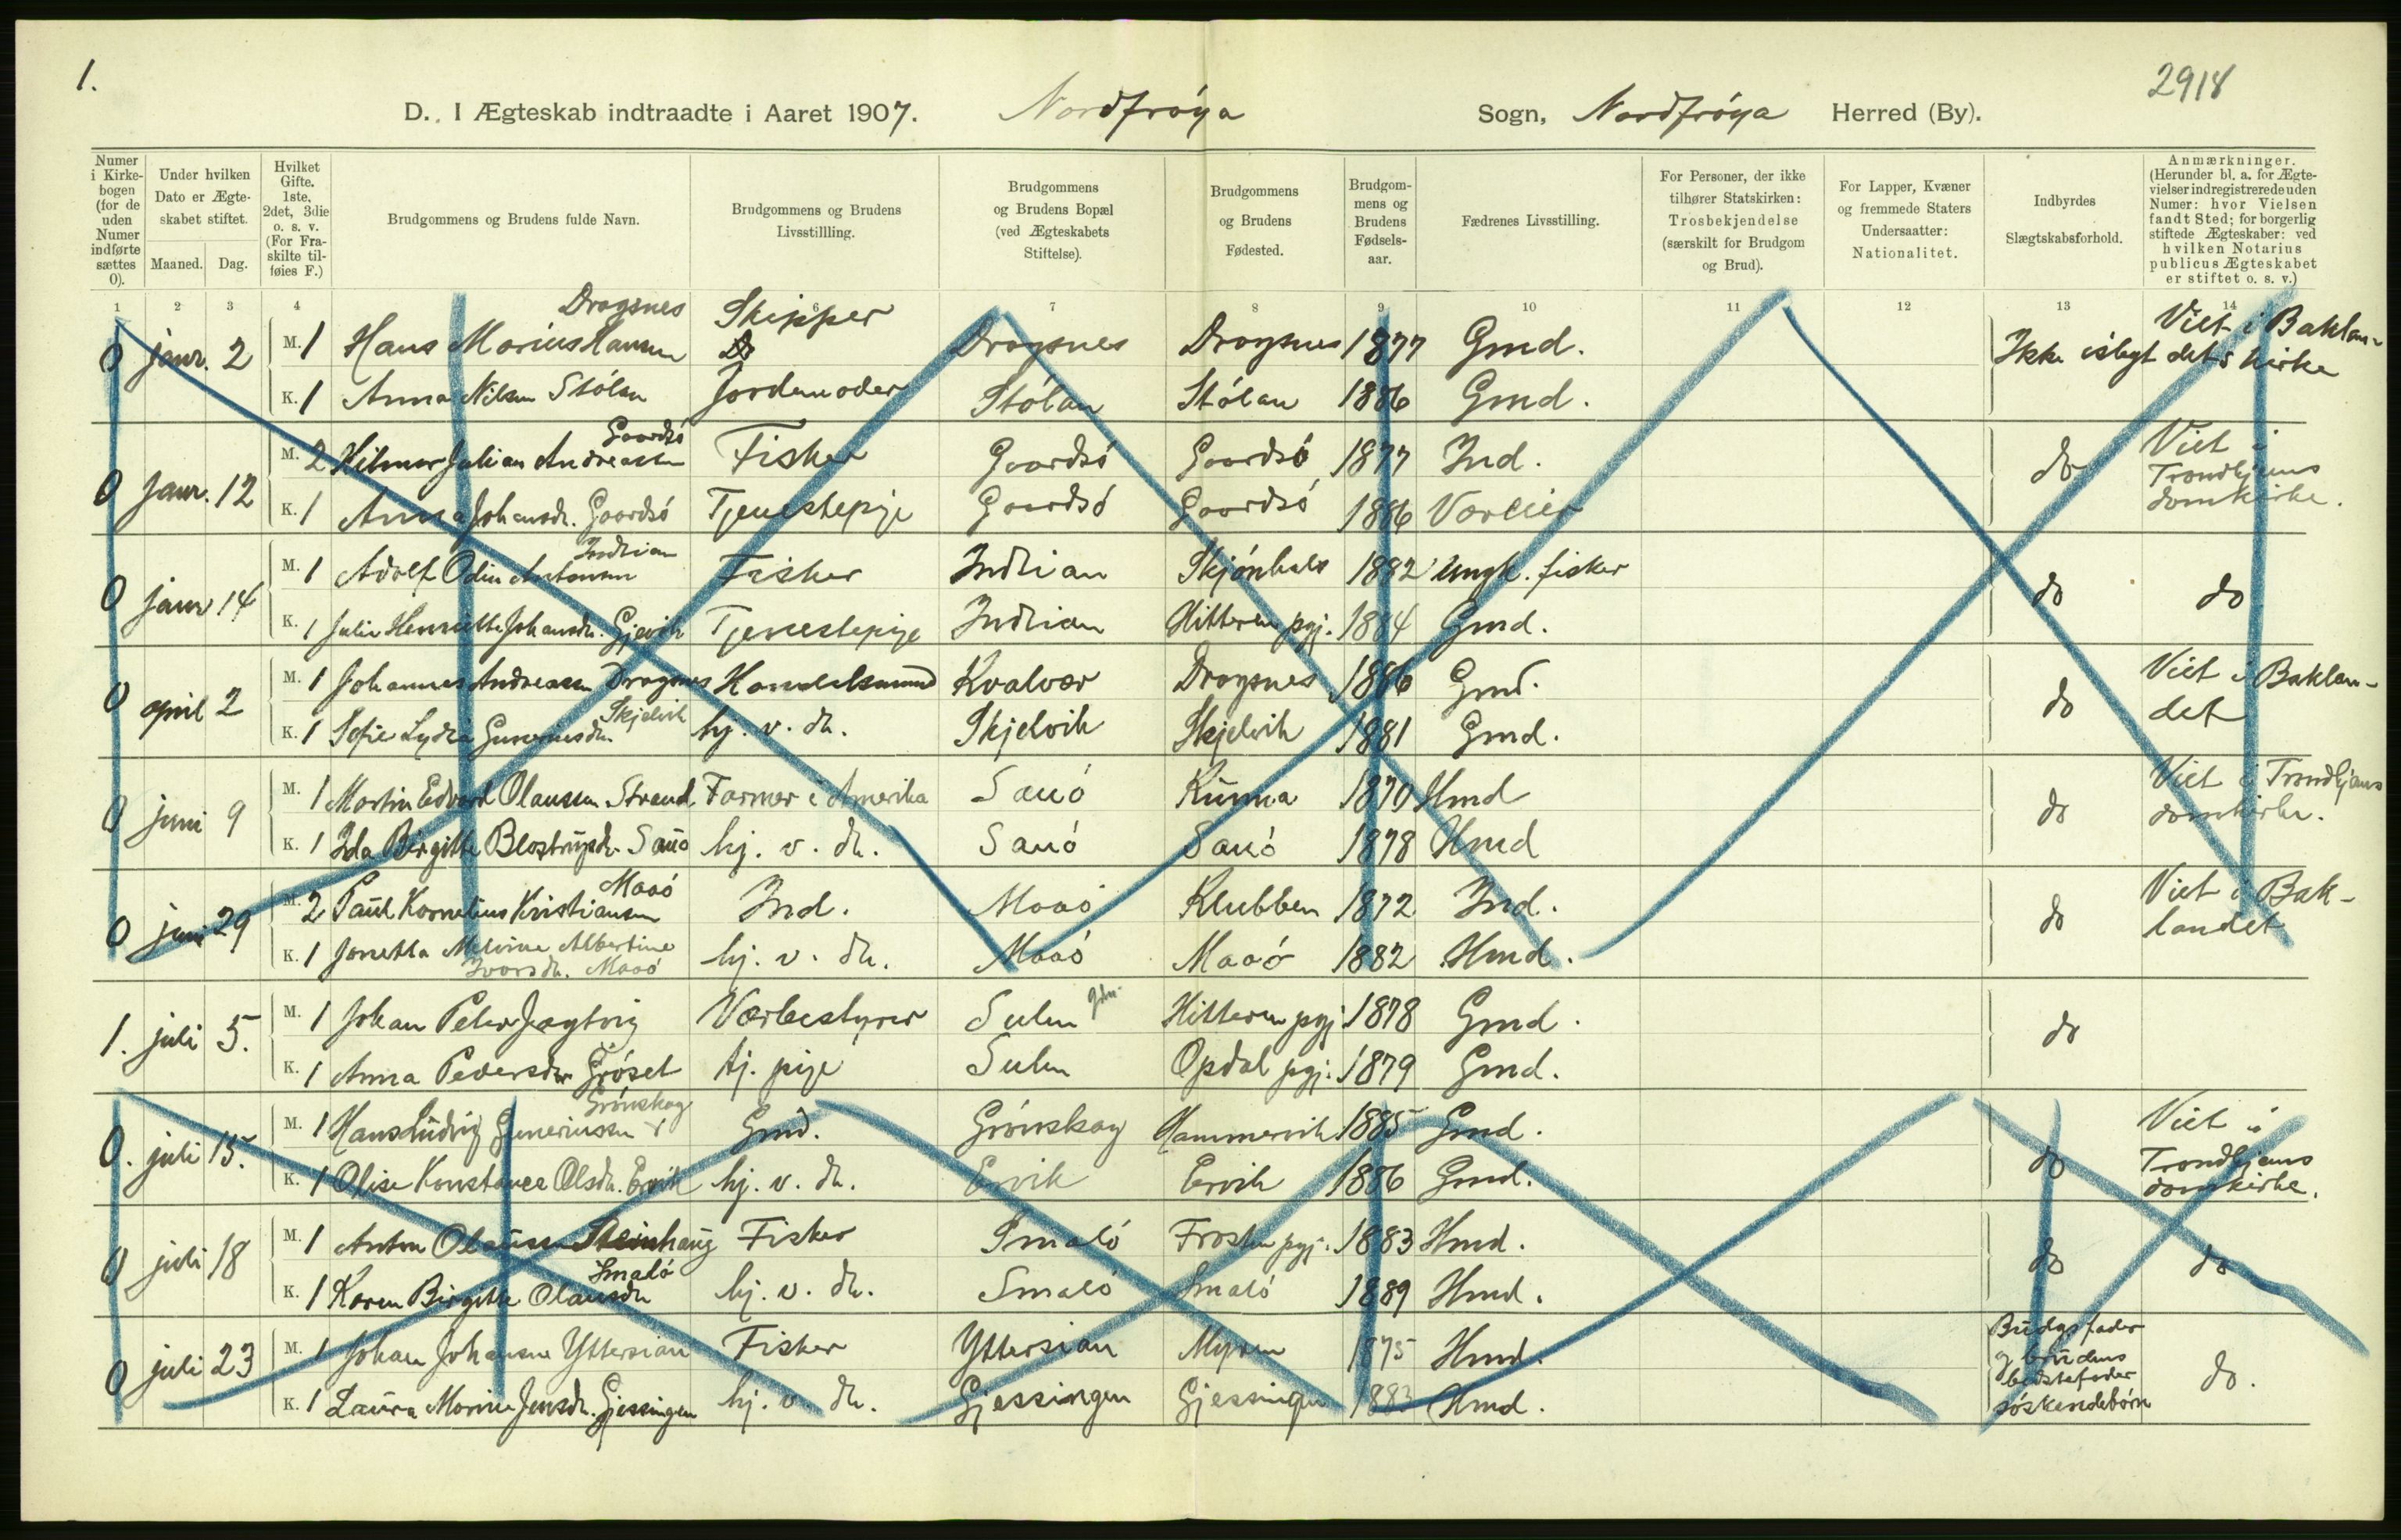 1.
2918
D. I Ægteskab indtraadte i Aaret 1907. Nordfrøya Sogn, Nordfrøya Herred (By).
Numer i Kirkebogen (for de uden Numer indførte sættes 0).
Under hvilken Dato er Ægteskabet stiftet.
Maaned. Dag.
Hvilket Gifte. 1ste, 2det, 3die o. s. v. (For Fraskilte tilføies F.)
Brudgommens og Brudens fulde Navn.
Brudgommens og Brudens Livsstillling.
Brudgommens og Brudens Bopæl (ved Ægteskabets Stiftelse).
Brudgommens og Brudens Fødested.
Brudgommens og Brudens Fødselsaar.
Fædrenes Livsstilling.
For Personer, der ikke tilhører Statskirken: Trosbekjendelse (særskilt for Brudgom og Brud).
For Lapper, Kvæner og fremmede Staters Undersaatter: Nationalitet.
Indbyrdes Slægtskabsforhold.
Anmærkninger. (Herunder bl. a. for Ægtevielser indregistrerede uden Numer: hvor Vielsen fandt Sted; for borgerlig stiftede Ægteskaber: ved hvilken Notarius publicus Ægteskabet er stiftet o. s. v.)
1 2 3 4 6 7 8 9 10 11 12 13 14
0 janr. 2 M. 1 Hans Marius Hansen Dragsnes Skipper Dragsnes Dragsnes 1877 Gmd. Ikke islegt Viet i Baklandets kirke
K. 1 Anna Nilsen Stölan Jordemoder Stölan Stölan 1886 Gmd.
0 janr. 12 M. 2 Hilmar Julian Andreassen Gaardsö Fisker Gaardsö Gaardsö 1877 Ind. do Viet i Trondhjems domkirke.
K. 1 Anna Johansdr. Gaardsö Tjenestepige Gaardsö Gaardsö 1886
0 janr 14 M. 1 Adolf Odin Antonsen Indrian Fisker Indrian Skjönhals 1882 Ungk. fisker do do
K. 1 Julie Henriette Johansdr. Gjevik Tjenestepige Indrian Hitteren pgj. 1884 Gmd.
0 april 2 M. 1 Johannes Andreassen Dragsnes Handelsmand Kvalvær Dragsnes 1886 Gmd. do Viet i Baklandet
K. 1 Sofie Lydia Guneriusdr. Skjelvik hj. v. dr. Skjelvik Skjelvik 1881 Gmd.
0 juni 9 M. 1 Martin Edvard Olaussen Strand Farmer i Amerika Sauö Kunna 1870 Hmd do Viet i Trondhjems domkirke.
K. 1 Ida Birgitte Sauö hj. v. dr. Sauö Sauö 1878 Hmd
0 juni 29 M. 2 Paul Kornelius Kristiansen Maaö Ind. Maaö Klubben 1872 Ind. do Viet i Baklandet
K. 1 Jonetta Melvine Albertine Ivarsdr. Maaö hj. v. dr. Maaö Maaö 1882 Hmd.
1. juli 5. M. 1 Johan Peter Jagtvig Værbestyrer Sulen Hitteren pgj 1878 Gmd. do
K. 1 Anna Pedersdr Gröset tj. pige Sulen Opdal pgj. 1879 Gmd.
0. juli 15. M. 1 Hans Ludvig Guneriussen Grönskag Gmd. Grönskag Hammervik 1885 Gmd. do Viet i Trondhjems domkirke.
K. 1 Olise Konstance Olsdr. Ervik hj. v. dr. Ervik Ervik 1886 Gmd.
0 juli 18 M. 1 Anton Olaussen Steinhaug Fisker Smalö Frosten pgj. 1883 Hmd. do do
K. 1 Karen Birgitte Olausdr Smalö hj. v. dr. Smalö Smalö 1889 Hmd.
0 juli 23 M. 1 Johan Johansen Yttersian Fisker Yttersian Myren 1875 Hmd. Budgs fader og brudens bedstefader söskendebörn do.
K. 1 Laura Marine Jensdr. Gjessingen hj. v. dr. Gjessingen Gjessingen 1883 Hmd.